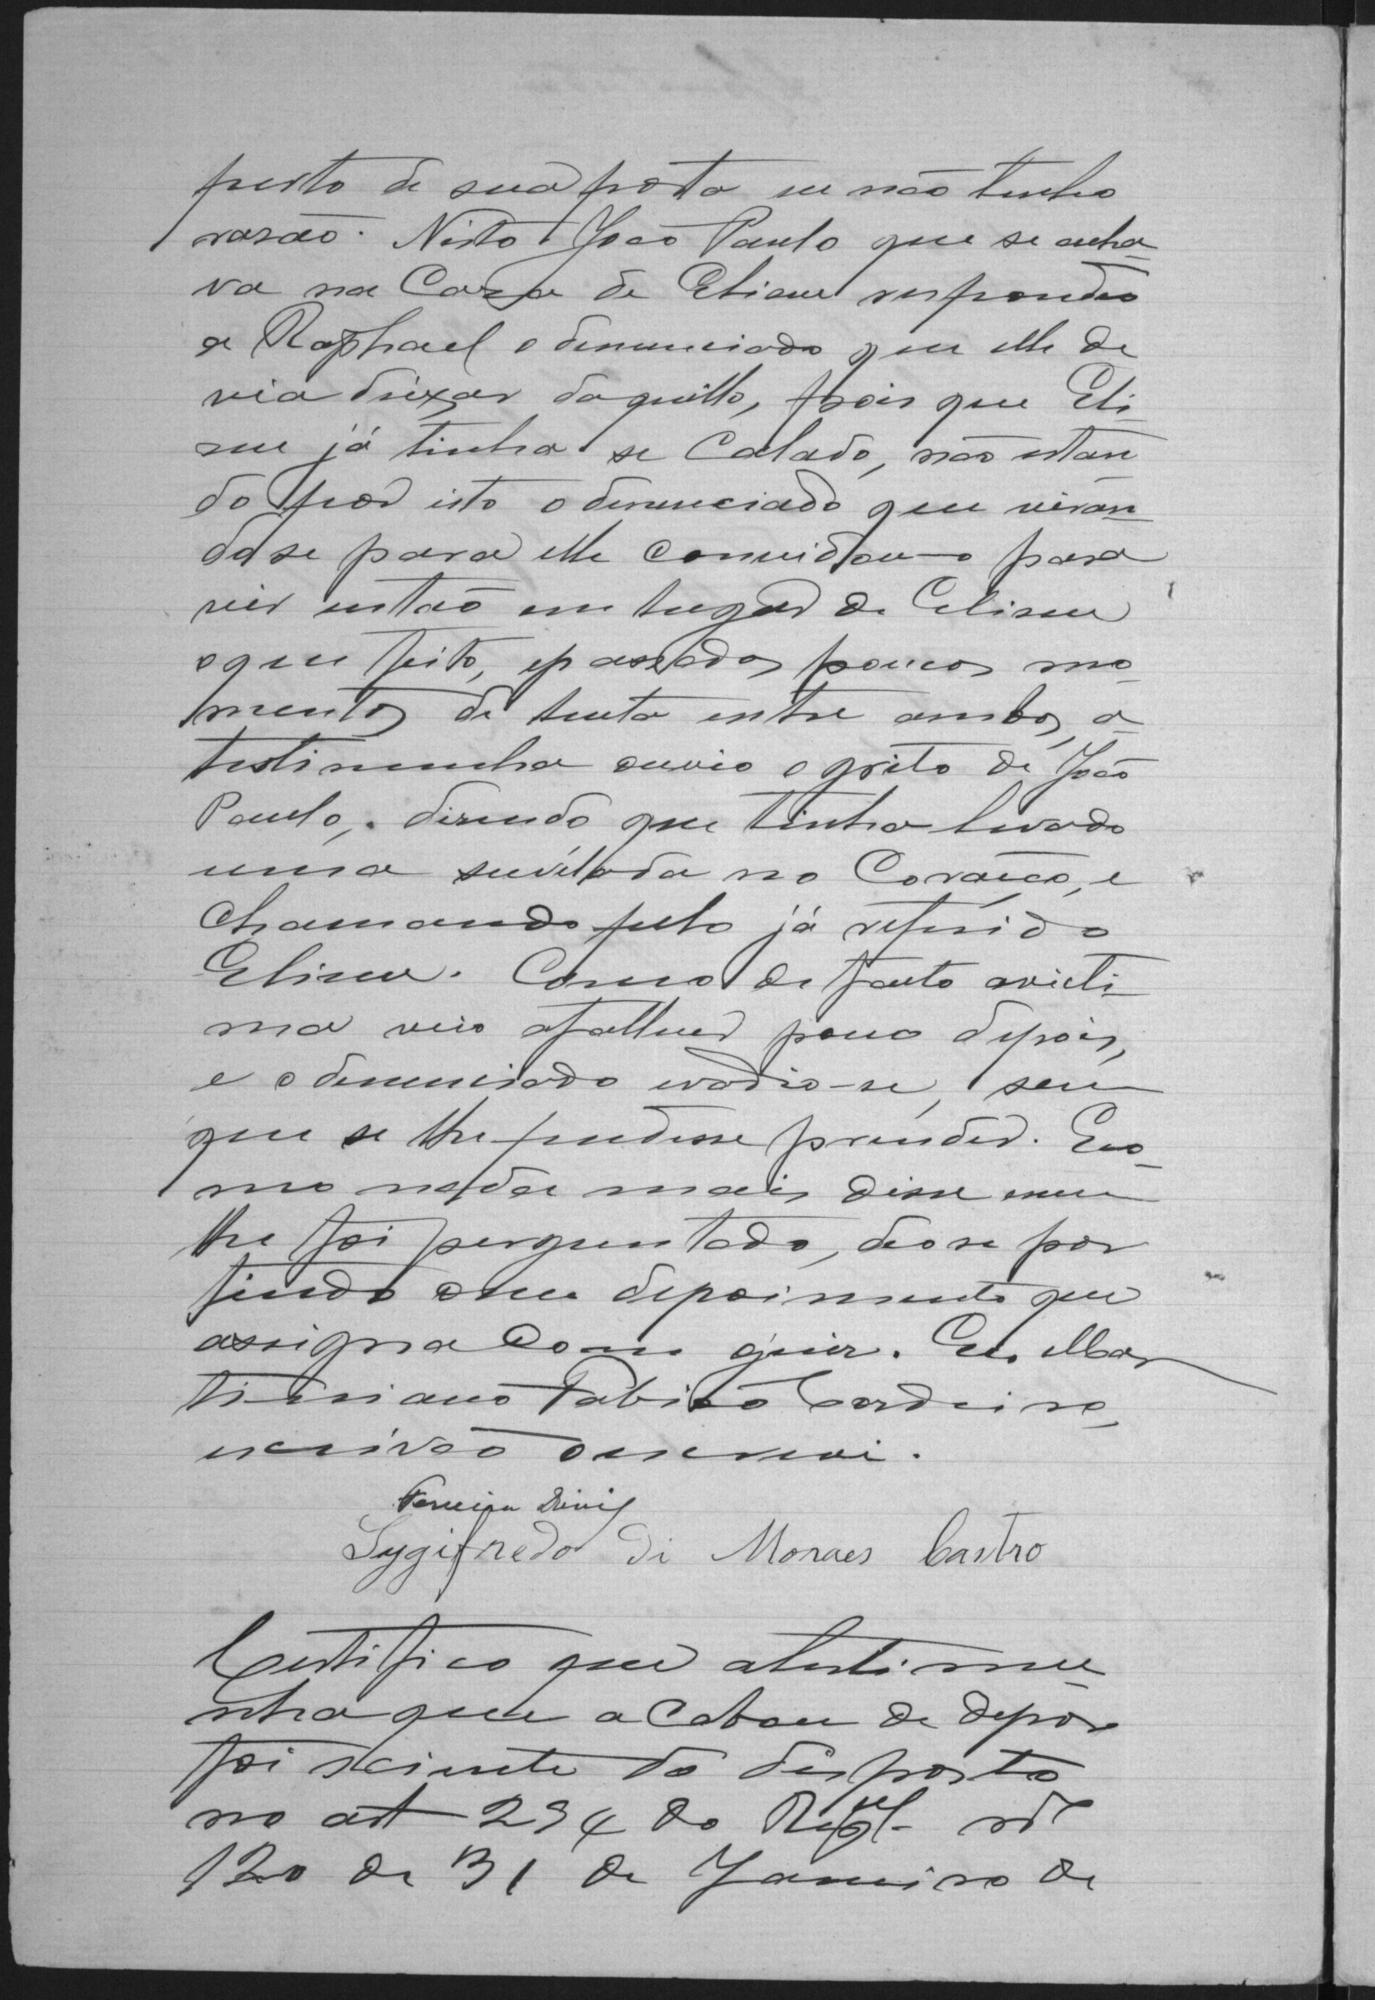 perto de sua porta se não tinha
rasão. Nisto João Paulo que se acha-
va na Caza de Eliseu respondeo
a Raphael o denunciado que elle de
via deixar daquillo, pois que Eli-
seu já tinha se Calado, não estan
do por isto o denunciado que viran-
do se para elle convidou-o para
vir então em lugar de Eliseu
o que feito, e passados poucos mo-
mentos de lucta entre ambos, a
testimunha ouvio o grito de João
Paulo, dizendo que tinha levado
uma suvélada no Coração, e
Chamando pelo já referido
Eliseu. Como de facto a victi-
ma veio a fallecer pouco depois,
e o denunciado evadio-se, sem
que se lhe pudesse prender. E co-
mo nada mais disse nem
lhe foi perguntado, deo se por
findo o seu depoimento que
assigna Com o juiz. Eu, Mar
tiniano Fabião Cordeiro,
escrivão o escrevi.
Ferreira Diniz
Sygifredo di Moraes Castro
Certifico que a testimu
nha que acabou de depor
foi sciente do disposto
no art 294 do Regul. nº
120 de 31 de Janeiro de